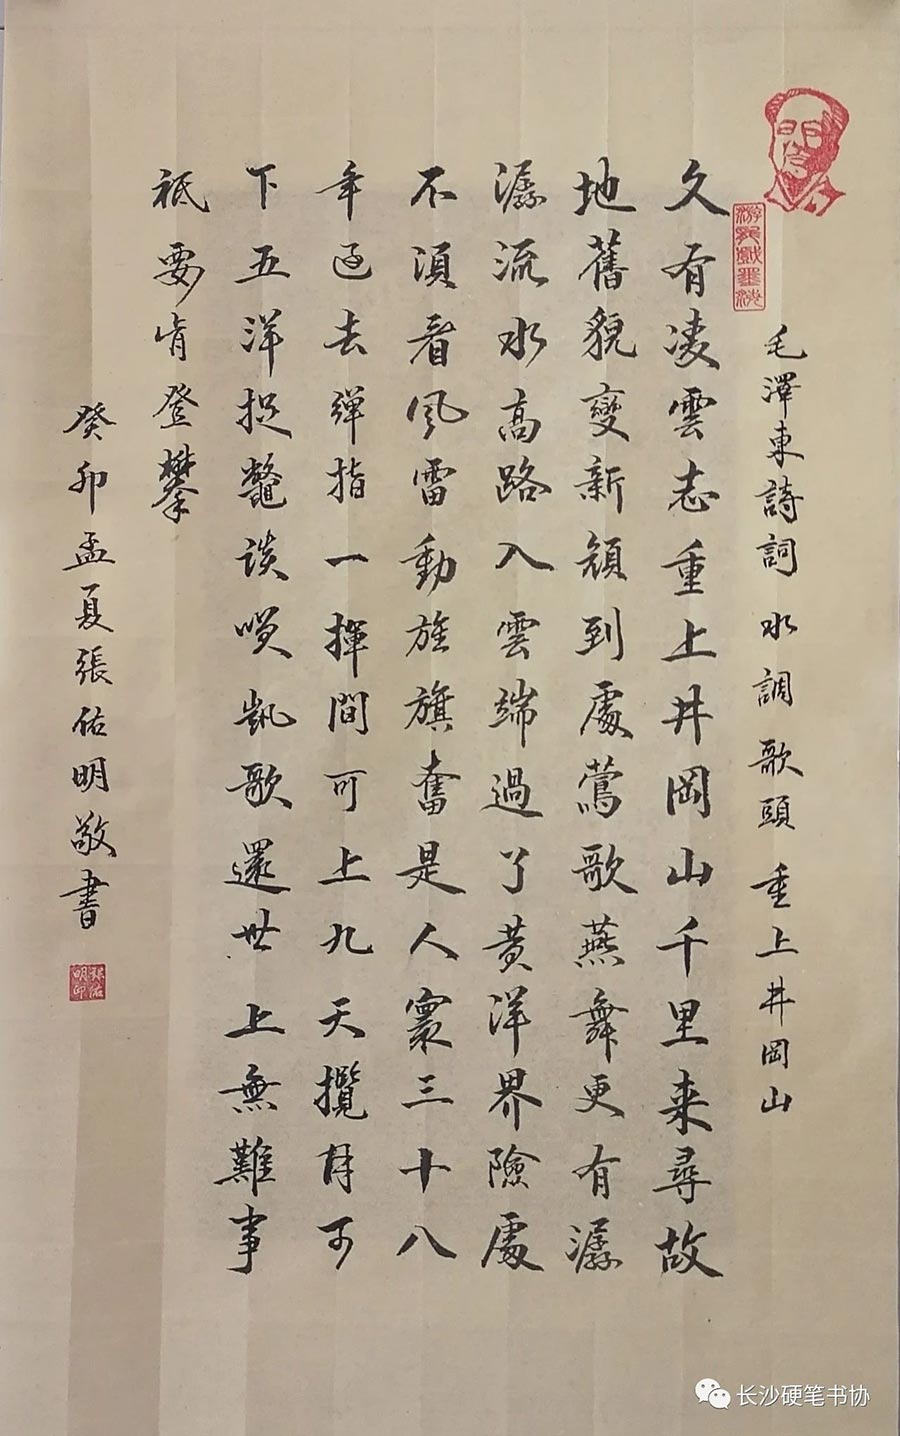 毛澤東詩詞水調歌頭重上井岡山
久有凌雲志重上井岡山千里来尋故
地舊貌變新顔到處鶯歌燕舞更有潺
潺流水高路入雲端過了黄洋界險處
不須看風雷動旌旗奮是人寰三十八
年過去彈指一揮間可上九天攬月可
下五洋捉鱉談笑凱歌還世上無難事
祗要肯登攀
癸卯孟夏張佑明敬書
張佑明印
长沙硬笔书协